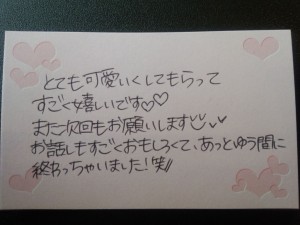 とても可愛いくしてもらって
すごく嬉しいです♡♡
また次回もお願いします
お話しもすごくおもしろくて、あっとゆう間に
終わっちゃいました!笑//